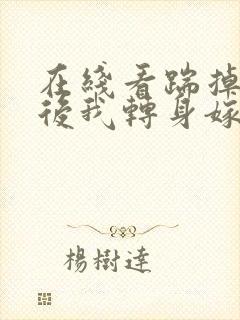 在綫看踹掉
後我轉身嫁
楊樹達